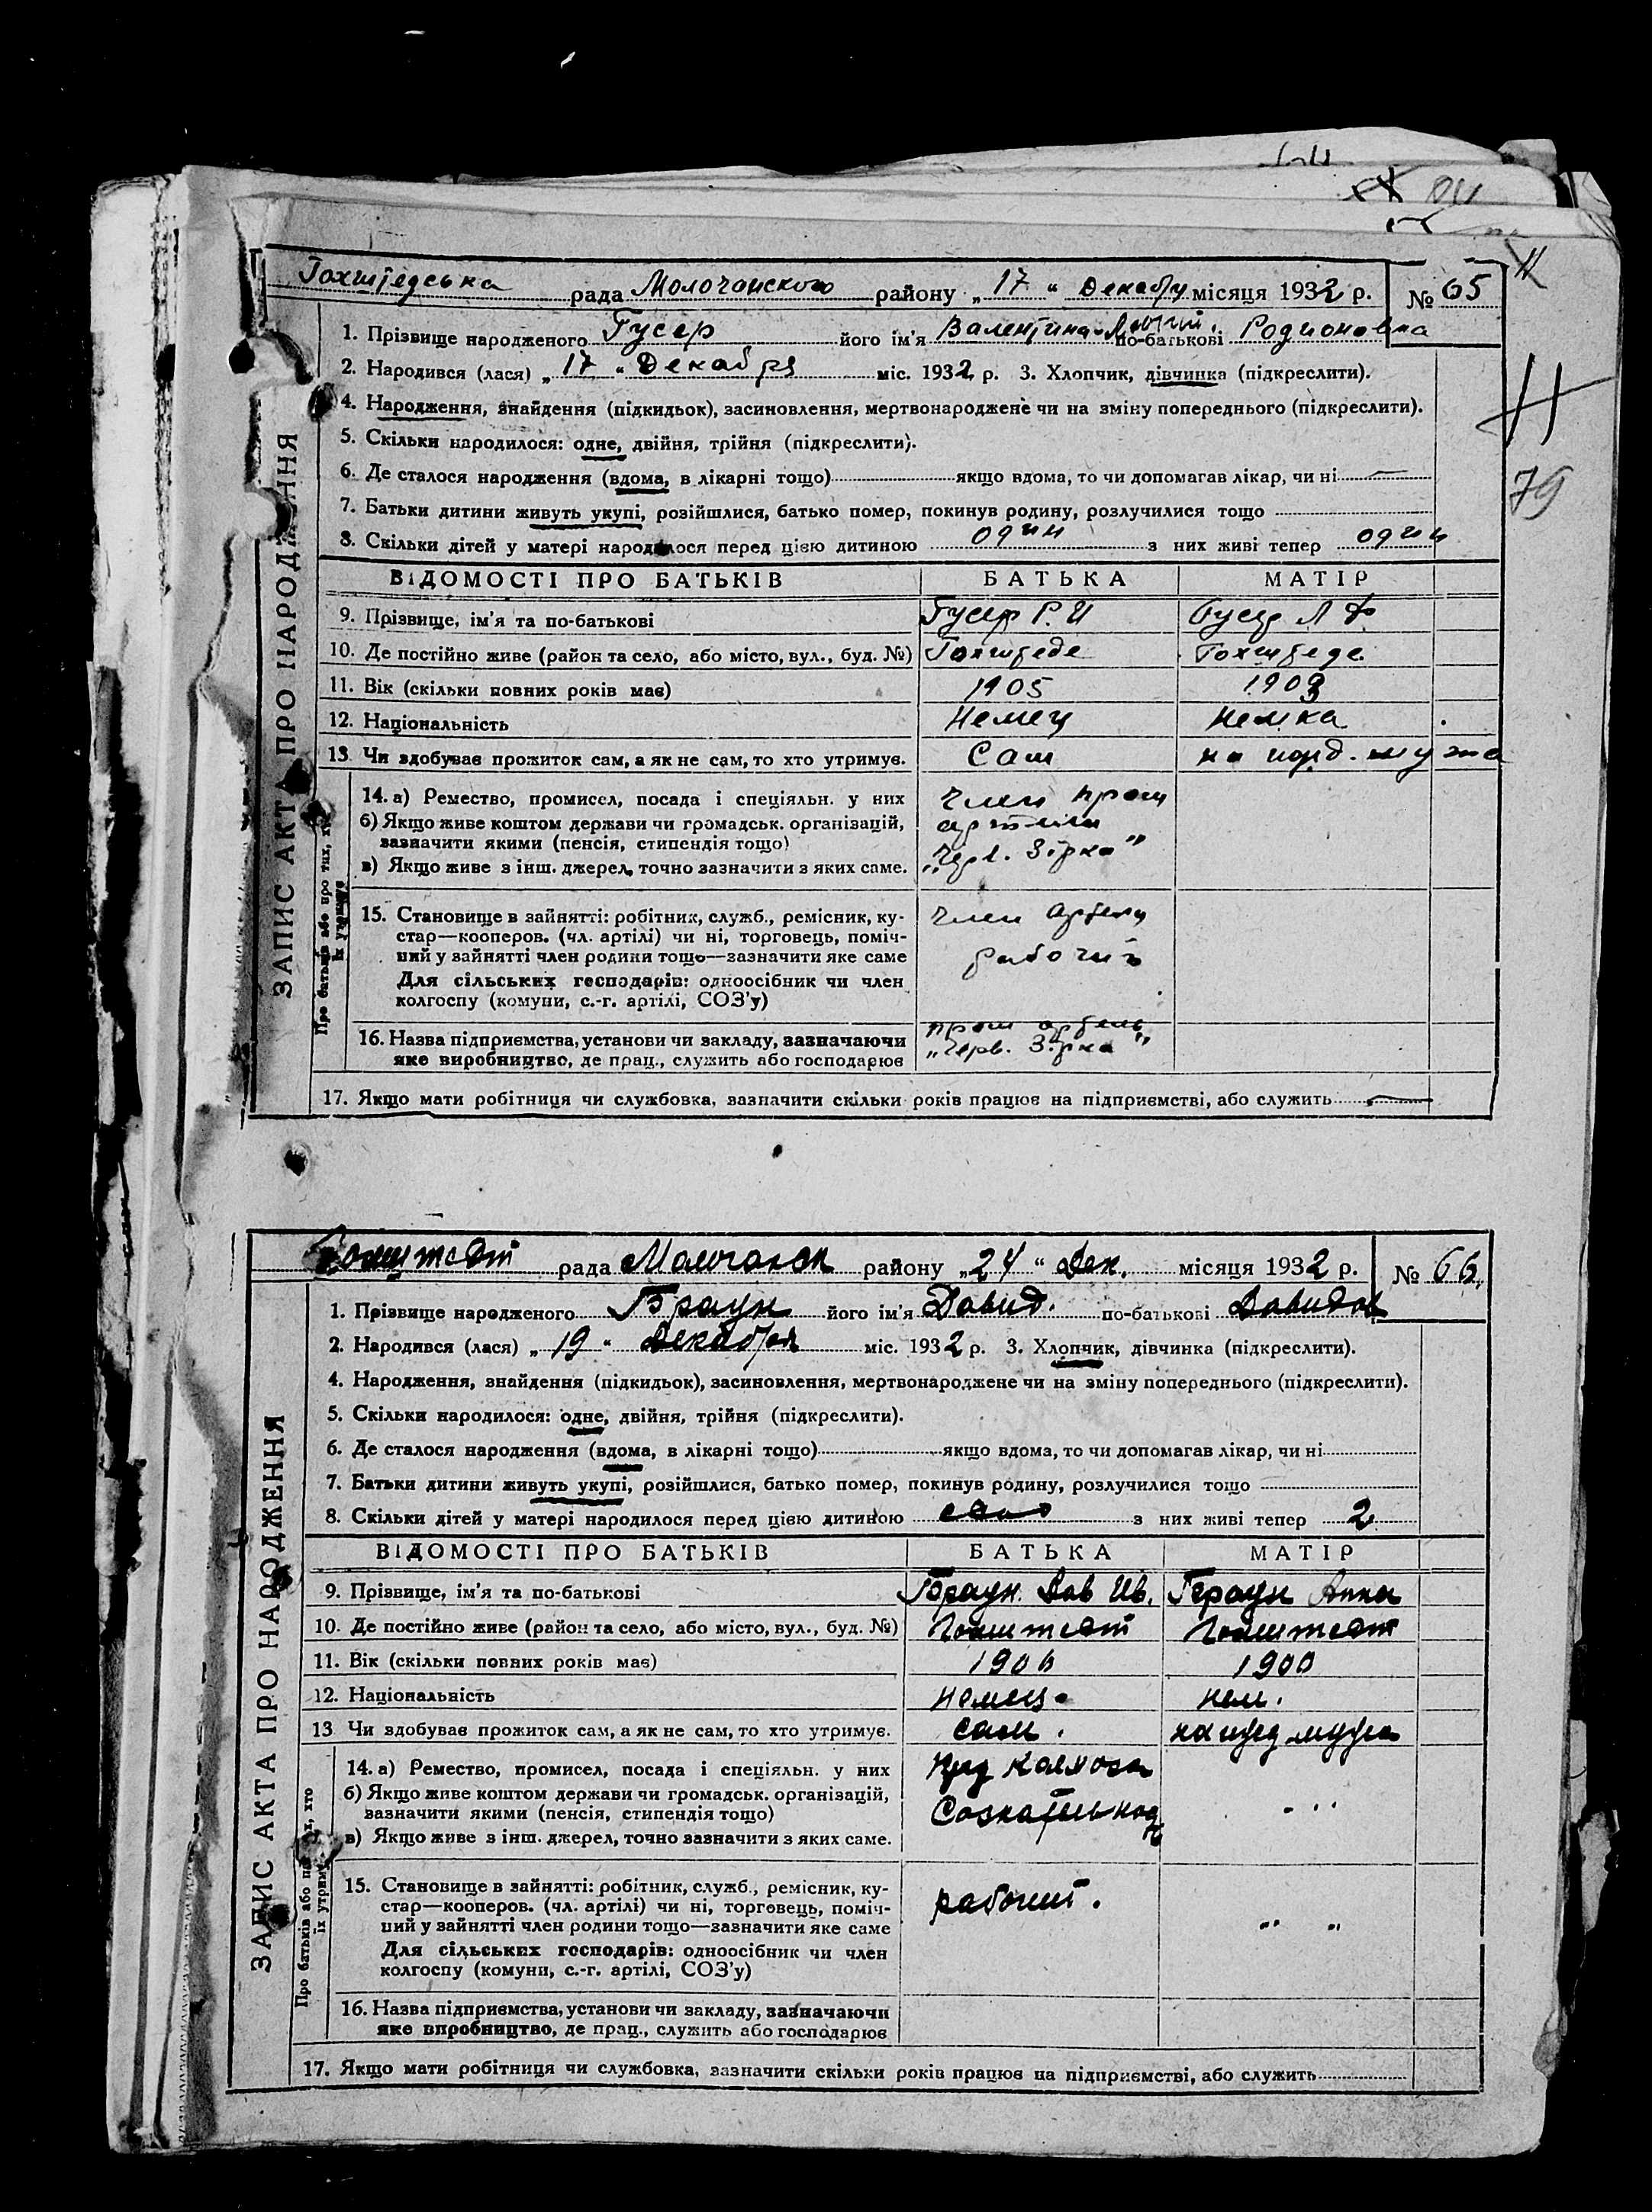 Гохштедська рада Молочанського району „17“ Декабря місяця 1932 р. № 65
1. Прізвище народженого Гусер його ім'я Валентина по-батькові Родионовна
2. Народився (лася) „17“ Декабря міс. 1932 р. 3. Хлопчик, дівчинка (підкреслити).
4. Народження, знайдення (підкидьок), засиновлення, мертвонароджене чи на зміну попереднього (підкреслити).
5. Скільки народилося: одне, двійня, трійня (підкреслити).
6. Де сталося народження (вдома, в лікарні тощо) якщо вдома, то чи допомагав лікар, чи ні —
7. Батьки дитини живуть укупі, розійшлися, батько помер, покинув родину, розлучилися тощо
8. Скільки дітей у матері народилося перед цією дитиною один з них живі тепер один
ВІДОМОСТІ ПРО БАТЬКІВ БАТЬКА МАТІР
9. Прізвище, ім'я та по-батькові Гусер Р. И Гусер Л Ф
10. Де постійно живе (район та село, або місто, вул., буд. №) Гохштеде Гохштеде
11. Вік (скільки повних років має) 1905 1903
12. Національність Немец немка
13. Чи здобував прожиток сам, а як не сам, то хто утримує. Сам на ижд. мужа
14. а) Ремество, промисел, посада і спеціяльн. у них член пром
б) Якщо живе коштом держави чи громадськ. організацій, артели
зазначити якими (пенсія, стипендія тощо) „Черв. Зірка“
в) Якщо живе з інш. джерел, точно зазначити з яких саме.
15. Становище в зайнятті: робітник, служб., ремісник, ку- член артели
стар—кооперов. (чл. артілі) чи ні, торговець, поміч-
ний у зайнятті член родини тощо—зазначити яке саме рабочий
Для сільських господарів: одноосібник чи член
колгоспу (комуни, с.-г. артілі, СОЗ'у)
16. Назва підприємства, установи чи закладу, зазначаючи пром артель
яке виробництво, де прац., служить або господарює „Черв. Зірка“
17. Якщо мати робітниця чи службовка, зазначити скільки років працює на підприємстві, або служить —
ЗАПИС АКТА ПРО НАРОДЖЕННЯ
Про батьків або про тих, хто
їх утримує
79
Гохштедт рада Молочанск району „24“ Дек. місяця 1932 р. № 66
1. Прізвище народженого Браун його ім'я Давид. по-батькові Давидов
2. Народився (лася) „19“ Декабря міс. 1932 р. 3. Хлопчик, дівчинка (підкреслити).
4. Народження, знайдення (підкидьок), засиновлення, мертвонароджене чи на зміну попереднього (підкреслити).
5. Скільки народилося: одне, двійня, трійня (підкреслити).
6. Де сталося народження (вдома, в лікарні тощо) якщо вдома, то чи допомагав лікар, чи ні
7. Батьки дитини живуть укупі, розійшлися, батько помер, покинув родину, розлучилися тощо
8. Скільки дітей у матері народилося перед цією дитиною з них живі тепер 2
ВІДОМОСТІ ПРО БАТЬКІВ БАТЬКА МАТІР
9. Прізвище, ім'я та по-батькові Браун. Дав Ив. Браун Анна
10. Де постійно живе (район та село, або місто, вул., буд. №) Гохштедт Гохштедт
11. Вік (скільки повних років має) 1900 1900
12. Національність немец. нем.
13. Чи здобував прожиток сам, а як не сам, то хто утримує. сам. на ижд мужа
14. а) Ремество, промисел, посада і спеціяльн. у них колхоза
б) Якщо живе коштом держави чи громадськ. організацій,
зазначити якими (пенсія, стипендія тощо)
в) Якщо живе з інш. джерел, точно зазначити з яких саме.
15. Становище в зайнятті: робітник, служб., ремісник, ку-
стар—кооперов. (чл. артілі) чи ні, торговець, поміч- рабочий.
ний у зайнятті член родини тощо—зазначити яке саме
Для сільських господарів: одноосібник чи член
колгоспу (комуни, с.-г. артілі, СОЗ'у)
16. Назва підприємства, установи чи закладу, зазначаючи
яке виробництво, де прац., служить або господарює
17. Якщо мати робітниця чи службовка, зазначити скільки років працює на підприємстві, або служить
ЗАПИС АКТА ПРО НАРОДЖЕННЯ
Про батьків або про тих, хто
їх утримує